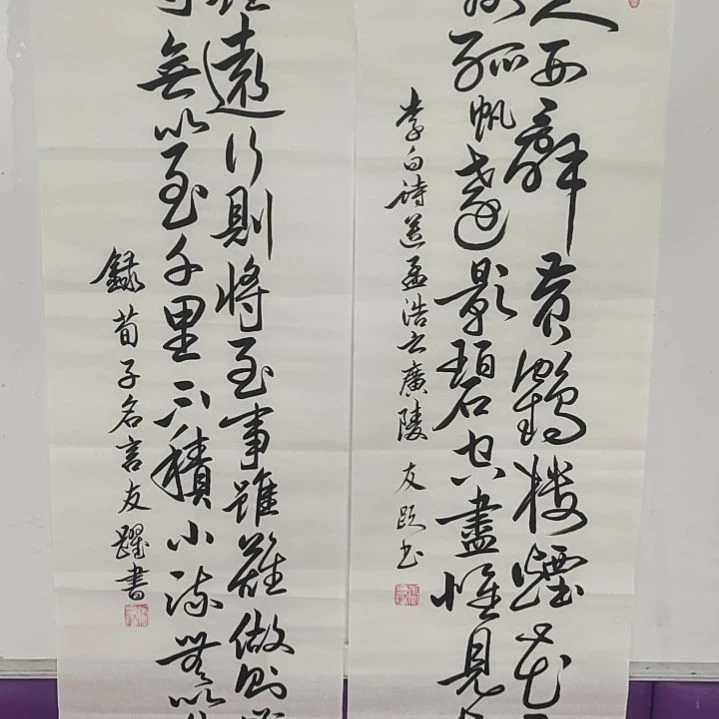 人西辭黄鶴楼煙花
孤帆遠影碧空盡惟見
李白诗送孟浩之廣陵 友跃书
遠行則將至事雖難做則
無以至千里不積小流無以
錄荀子名言友躍書